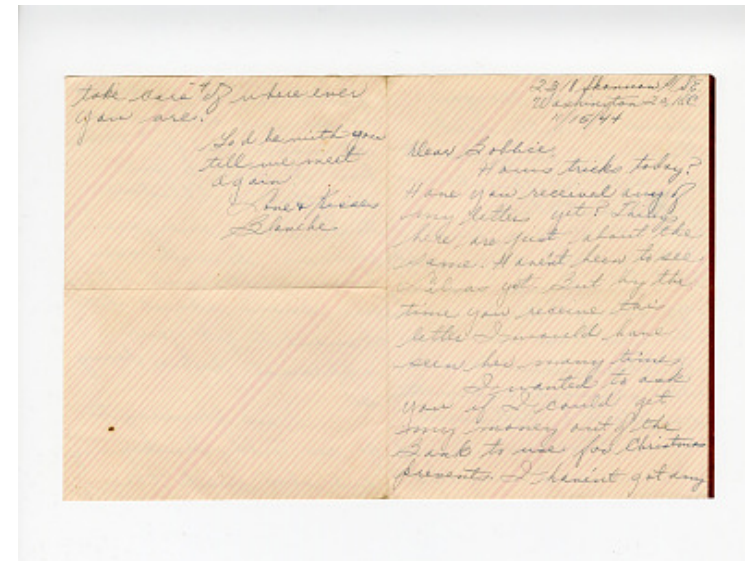 take care of where ever
you are.
God be with you
till we meet
again
Love & Kisses
Blanche
Washington 20, DC
11/15/44
Dear Bobbie,
Hows tricks today?
Have you received any of
my letters yet? Things
here are just about the
same. Haven't been to see
as yet. But by the
time you receive this
letter I would have
seen her many times
I wanted to ask
you if I could get
my money out of the
Bank to use for Christmas
presents. I haven't got any